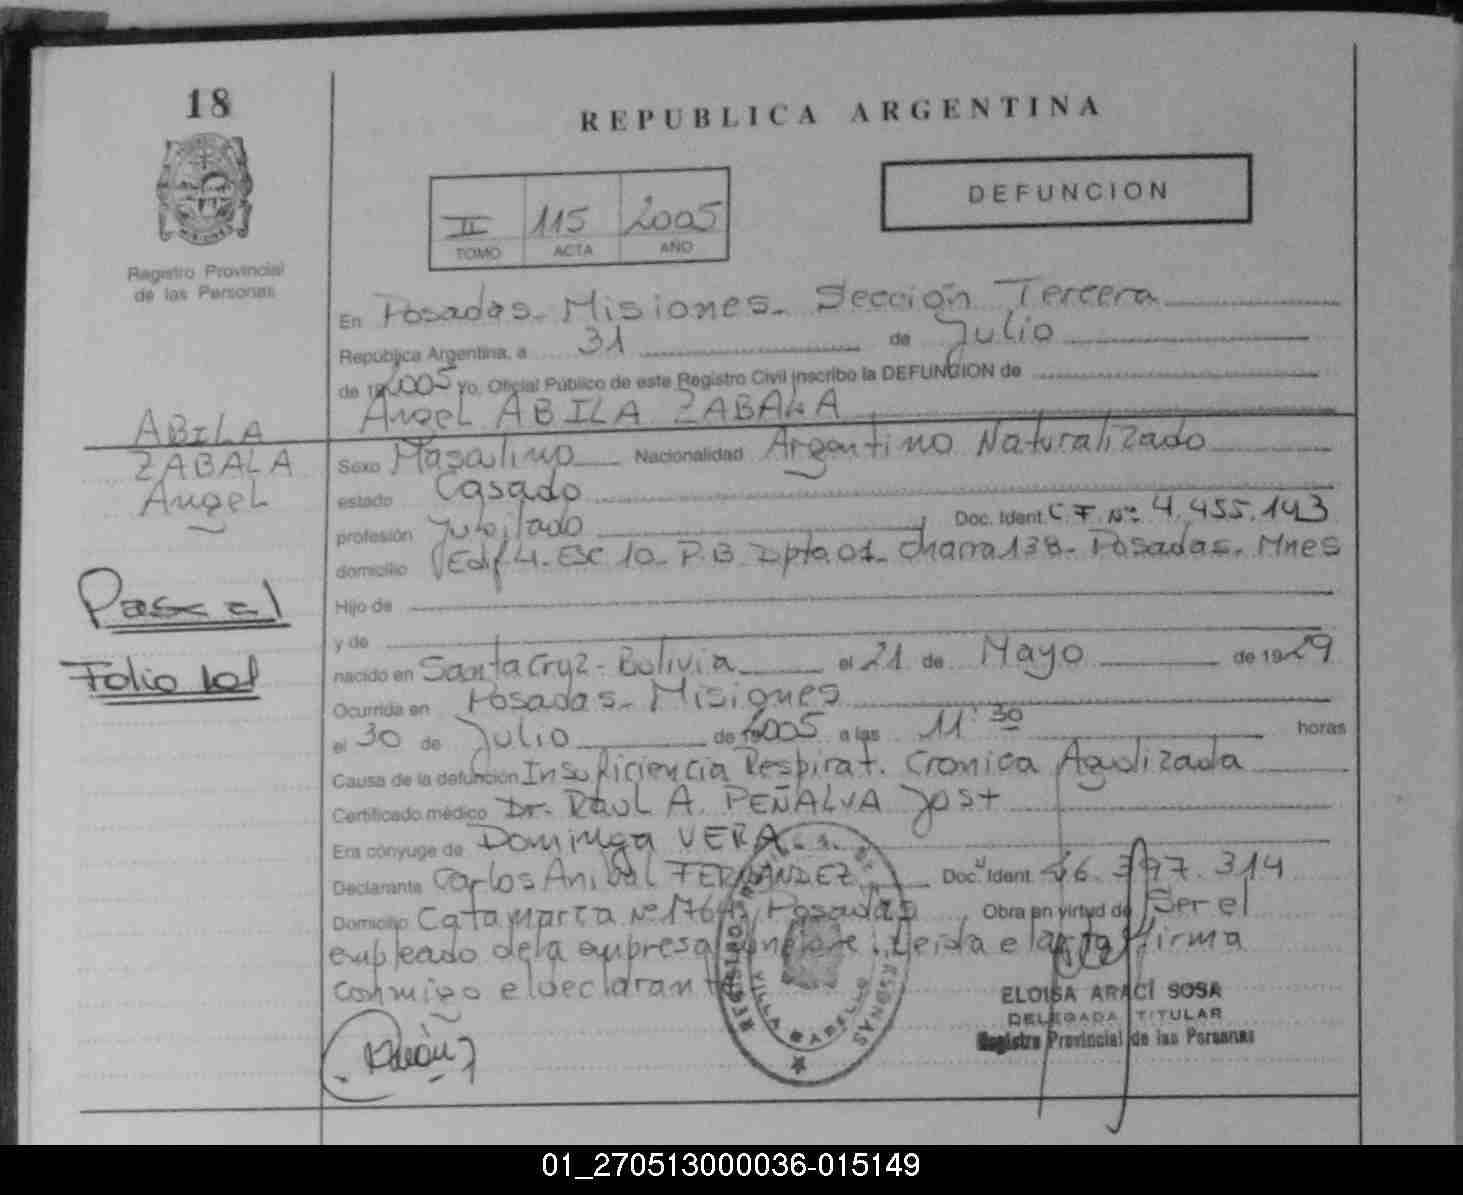 18
REPUBLICA ARGENTINA
DEFUNCION
II 115 2005
TOMO ACTA AÑO
Registro Provincial
de las Personas
En Posadas - Misiones - Sección Tercera
República Argentina, a 31 de Julio
de 2005 yo, Oficial Público de este Registro Civil inscribo la DEFUNCION de
Angel ABILA ZABALA
ABILA
ZABALA
Angel
Sexo Masculino Nacionalidad Argentino Naturalizado
estado Casado
profesión Jubilado Doc. Ident. C.F. Nº 4.455.143
domicilio Edif 4 - Esc 10 - P.B. Dpto 01 - Chacra 138 - Posadas - Mnes
Pascal
Hijo de
y de
Folio 101
nacido en Santa Cruz - Bolivia el 21 de Mayo de 1929
Ocurrida en Posadas - Misiones
el 30 de Julio de 2005 a las 11:30 horas
Causa de la defunción Insuficiencia Respirat. Cronica Agudizada
Certificado médico Dr. Raul A. PEÑALVA Jost
Era cónyuge de Dominga VERA
Declarante Carlos Anibal FERNANDEZ Doc. Ident. 16.397.314
Domicilio Catamarca Nº Posadas Obra en virtud de Ser el
empleado de la empresa Leida el acta firma
conmigo el declarante
REGISTRO PERSONAS
VILLA CABELLO
ELOISA ARACI SOSA
DELEGADA TITULAR
Registro Provincial de las Personas
01_270513000036-015149